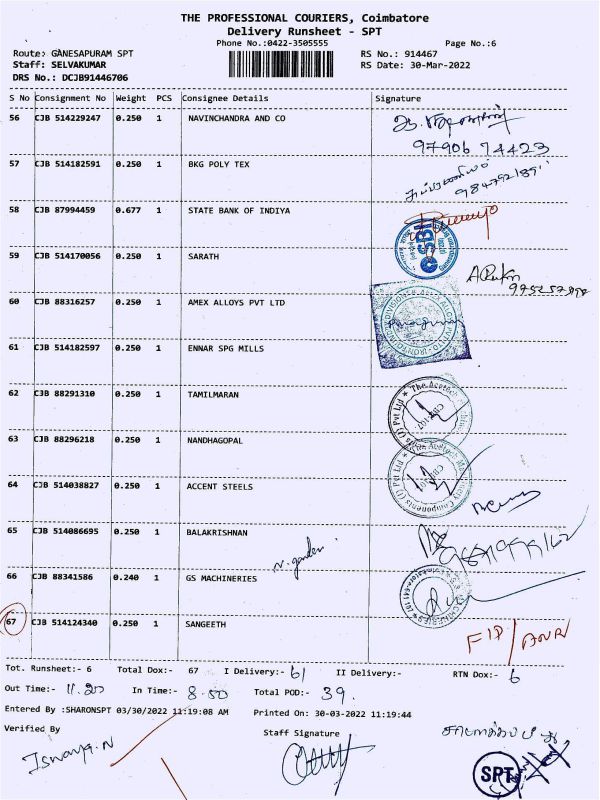 THE PROFESSIONAL COURIERS, Coimbatore
Delivery Runsheet - SPT
Phone No.:0422-3505555 Page No.:6
Route: GANESAPURAM SPT RS No.: 914467
Staff: SELVAKUMAR RS Date: 30-Mar-2022
DRS No.: DCJB91446706
S No Consignment No Weight PCS Consignee Details Signature
56 CJB 514229247 0.250 1 NAVINCHANDRA AND CO
97906 74423
57 CJB 514182591 0.250 1 BKG POLY TEX
58 CJB 87994459 0.677 1 STATE BANK OF INDIYA
SBI
59 CJB 514170056 0.250 1 SARATH
60 CJB 88316257 0.250 1 AMEX ALLOYS PVT LTD
61 CJB 514182597 0.250 1 ENNAR SPG MILLS
62 CJB 88291310 0.250 1 TAMILMARAN
63 CJB 88296218 0.250 1 NANDHAGOPAL
64 CJB 514038827 0.250 1 ACCENT STEELS
65 CJB 514086695 0.250 1 BALAKRISHNAN
66 CJB 88341586 0.240 1 GS MACHINERIES
67 CJB 514124340 0.250 1 SANGEETH
Tot. Runsheet:- 6 Total Dox:- 67 I Delivery:- 61 II Delivery:- RTN Dox:- 6
Out Time:- 11.20 In Time:- 8.50 Total POD:- 39.
Entered By :SHARONSPT 03/30/2022 11:19:08 AM Printed On: 30-03-2022 11:19:44
Verified By Staff Signature
SPT